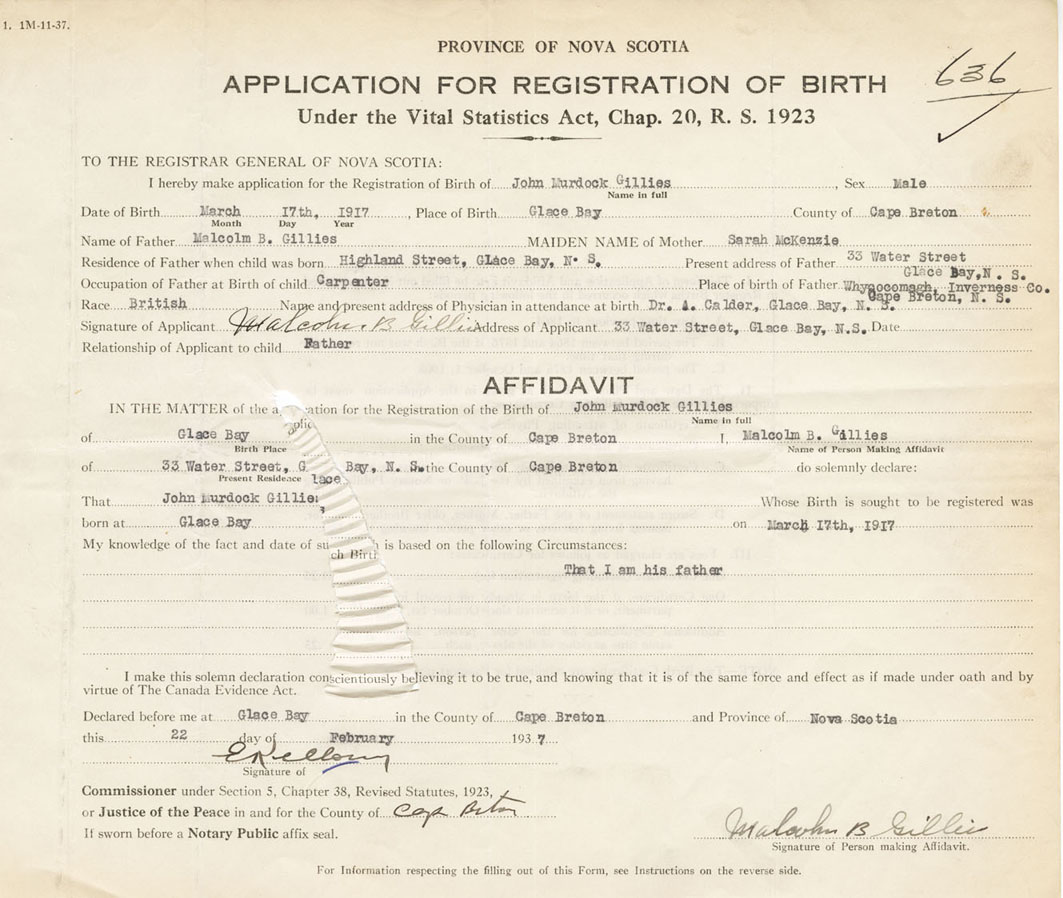 1. 1M-11-37.
PROVINCE OF NOVA SCOTIA
636
APPLICATION FOR REGISTRATION OF BIRTH
Under the Vital Statistics Act, Chap. 20, R. S. 1923
TO THE REGISTRAR GENERAL OF NOVA SCOTIA:
I hereby make application for the Registration of Birth of John Murdock Gillies, Sex Male
Name in full
Date of Birth March 17th, 1917, Place of Birth Glace Bay County of Cape Breton
Month Day Year
Name of Father Malcolm B. Gillies MAIDEN NAME of Mother Sarah McKenzie
Residence of Father when child was born Highland Street, Glace Bay, N. S. Present address of Father 33 Water Street
Glace Bay, N. S.
Occupation of Father at Birth of child Carpenter Place of birth of Father Whycocomagh, Inverness Co.
Cape Breton, N. S.
Race British Name and present address of Physician in attendance at birth Dr. A. Calder, Glace Bay, N. S.
Signature of Applicant Malcolm B Gillis Address of Applicant 33 Water Street, Glace Bay, N.S. Date
Relationship of Applicant to child Father
AFFIDAVIT
IN THE MATTER of the application for the Registration of the Birth of John Murdock Gillies
Name in full
of Glace Bay in the County of Cape Breton I, Malcolm B. Gillies
Birth Place Name of Person Making Affidavit
of 33 Water Street, Glace Bay, N. S. the County of Cape Breton do solemnly declare:
Present Residence
That John Murdock Gillies Whose Birth is sought to be registered was
born at Glace Bay on March 17th, 1917
My knowledge of the fact and date of such Birth is based on the following Circumstances:
That I am his father
I make this solemn declaration conscientiously believing it to be true, and knowing that it is of the same force and effect as if made under oath and by
virtue of The Canada Evidence Act.
Declared before me at Glace Bay in the County of Cape Breton and Province of Nova Scotia
this 22 day of February 1937
Signature of
Commissioner under Section 5, Chapter 38, Revised Statutes, 1923,
or Justice of the Peace in and for the County of Cape Breton
If sworn before a Notary Public affix seal.
Malcolm B Gillis
Signature of Person making Affidavit.
For Information respecting the filling out of this Form, see Instructions on the reverse side.